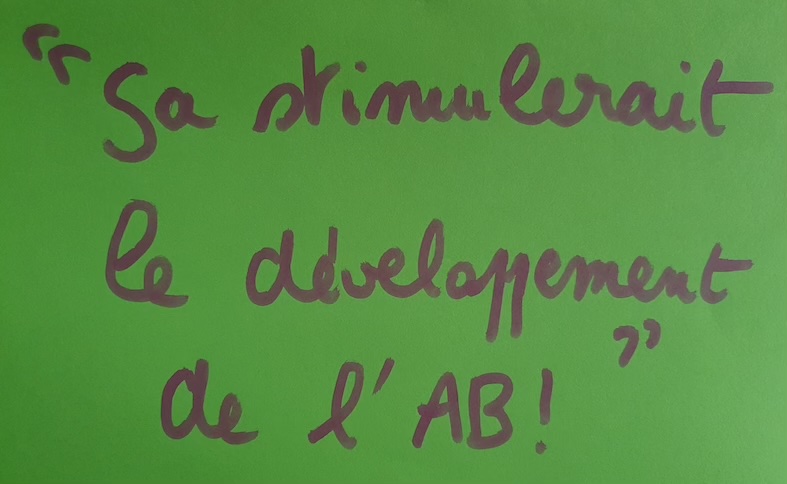 "Sa stimulerait
le développement
de l'AB!"